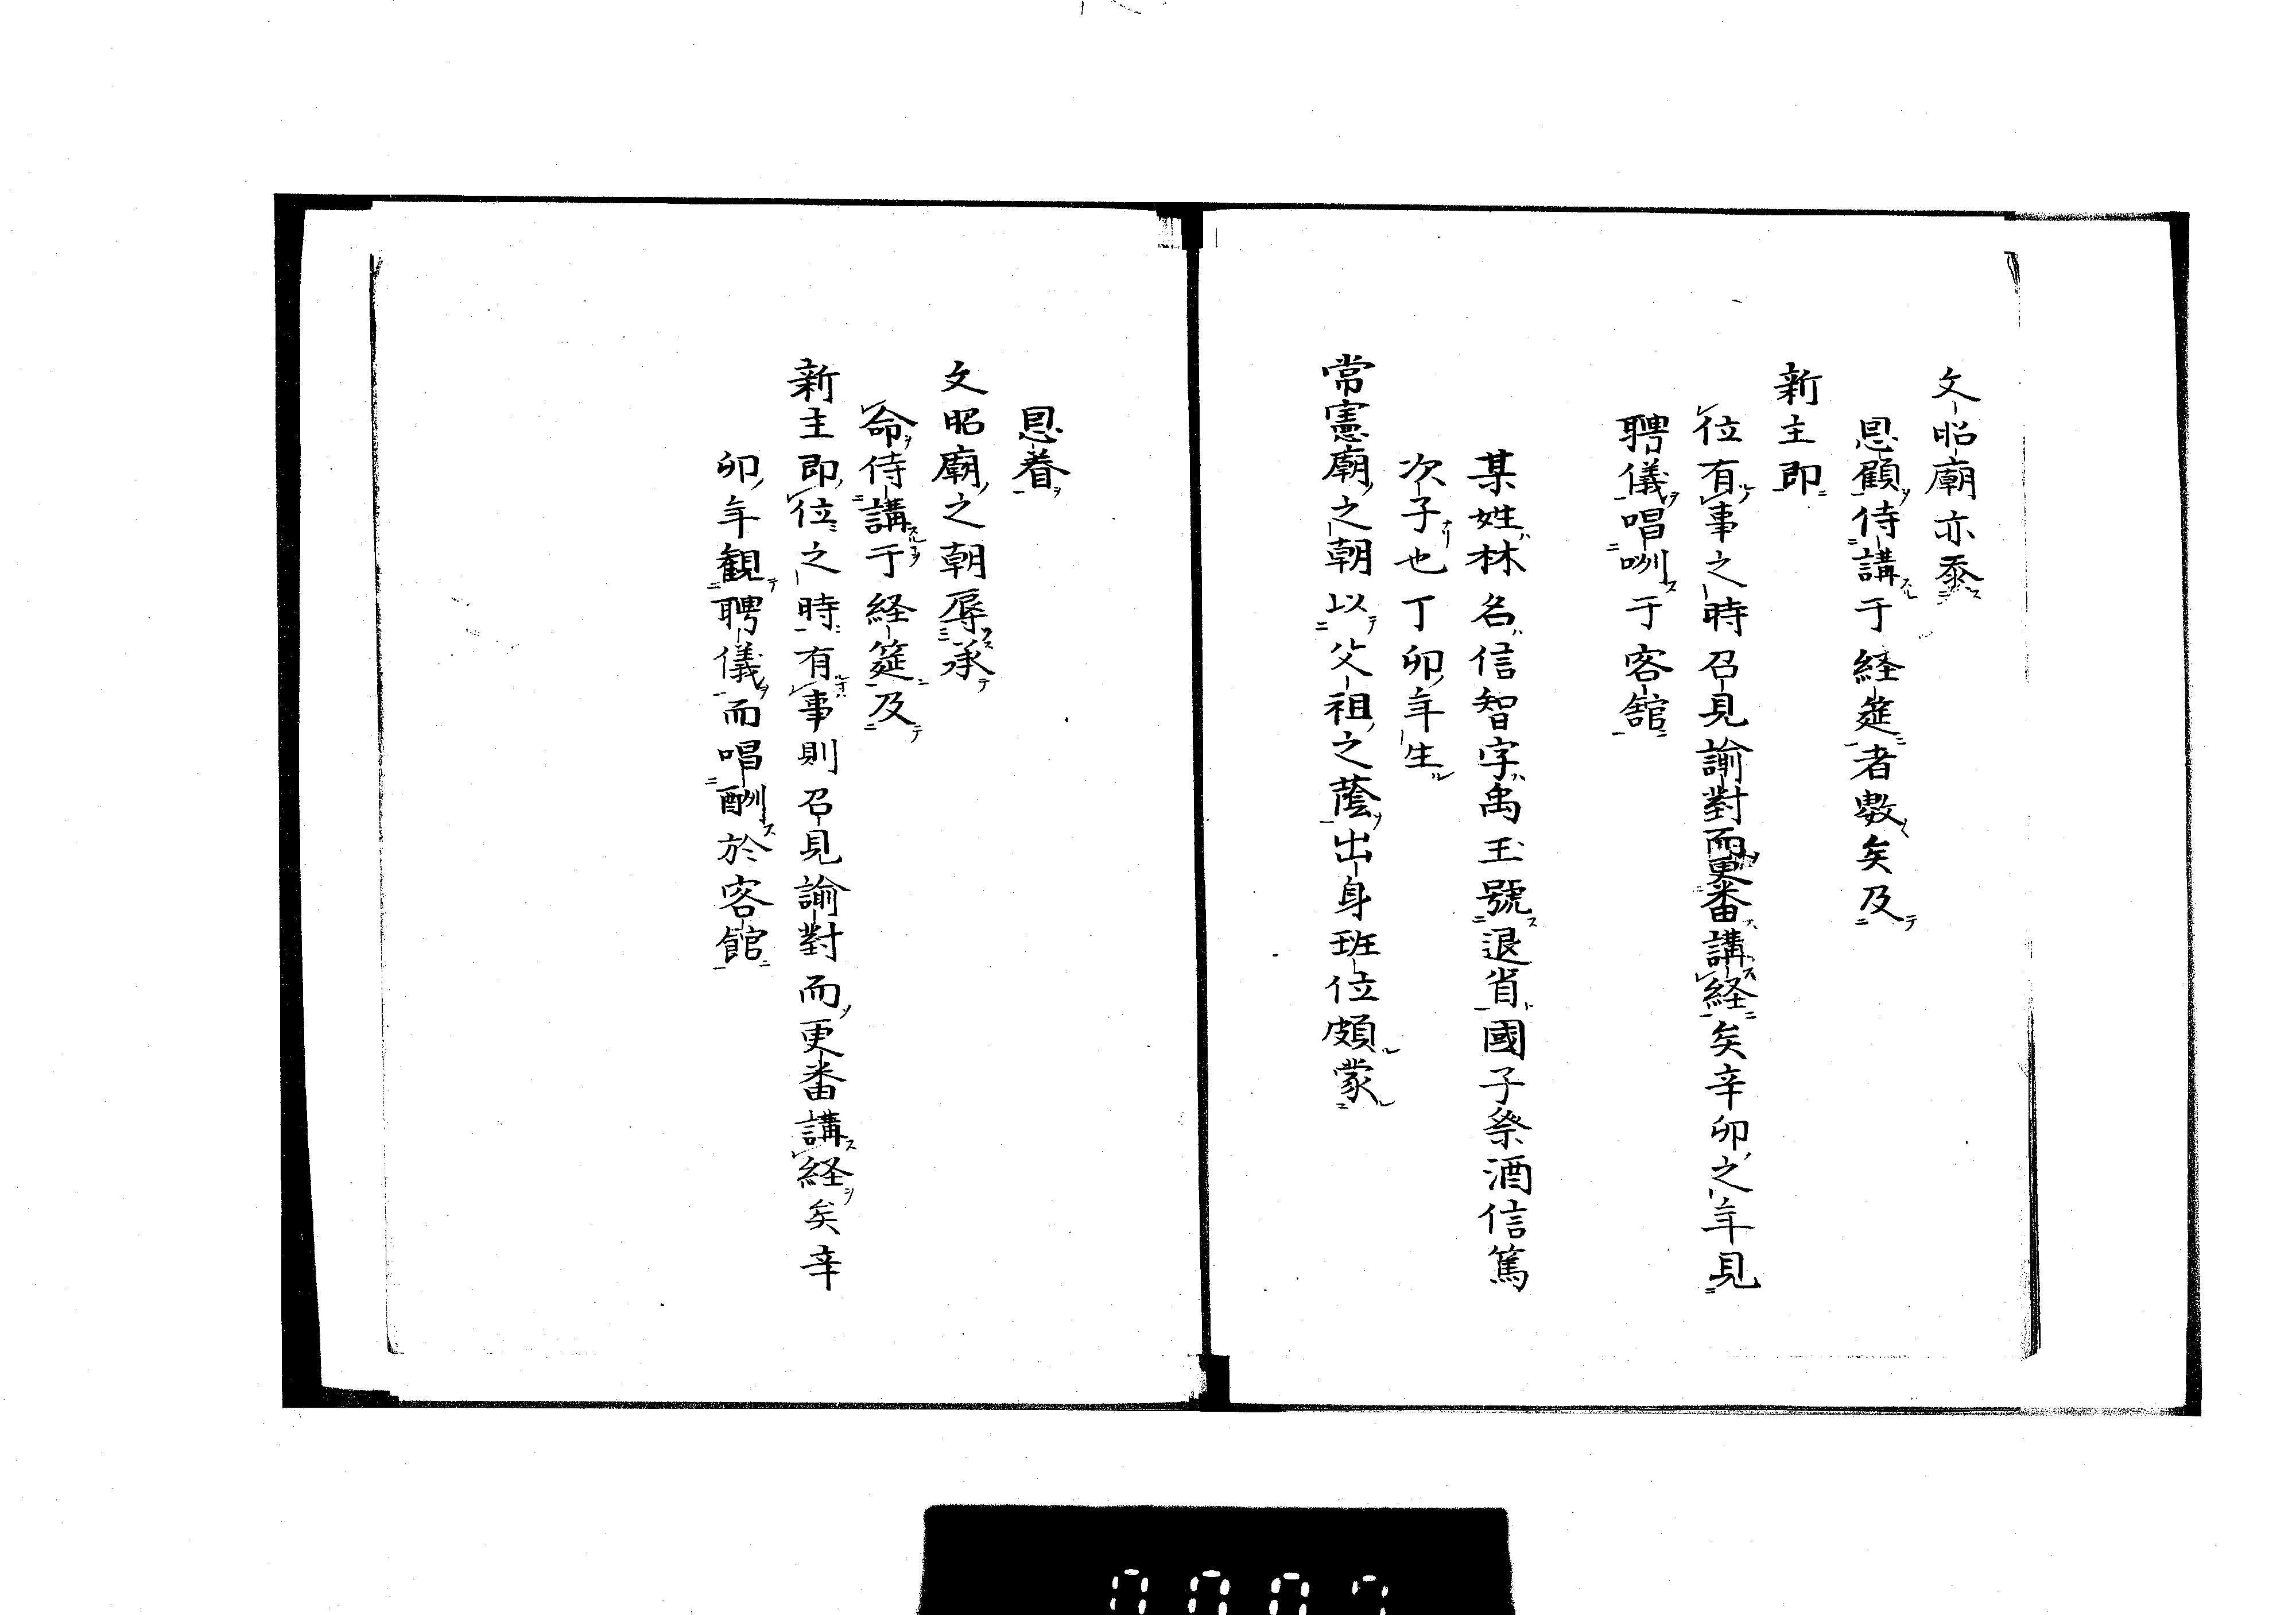 文昭廟亦忝
恩顧侍講于経筵者數矣及
新主即
位有事之時召見諭對而更番講経矣辛卯之年見
聘儀唱酬于客館
某姓林名信智字禹玉號退省國子祭酒信篤
次子也丁卯年生
常憲廟之朝以父祖之蔭出身班位頗蒙
恩眷
文昭廟之朝辱承
命侍講于経筵及
新主即位之時有事則召見諭對而更番講経矣辛
卯年観聘儀而唱酬於客館